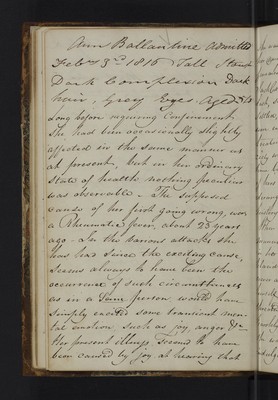 Ann Ballantine admitted
Feby 3rd 1816 Tall Stout
Dark Complexion Dark
hair, Grey Eyes Aged
Long before requiring Confinement
She had been occasionally slightly
affected in the same manner as
at present, but in her ordinary
State of health nothing peculiar
was observable. The supposed
cause of her first going wrong, was
a Rheumatic fever, about 23 years
ago. In the various attacks she
has had since the exciting cause,
seems always to have been the
occurrence of such circumstances
as in a Sane person would have
simply excited some transient men-
tal emotion, such as joy, anger &c
Her present illness, seems to have
been caused by joy at hearing that